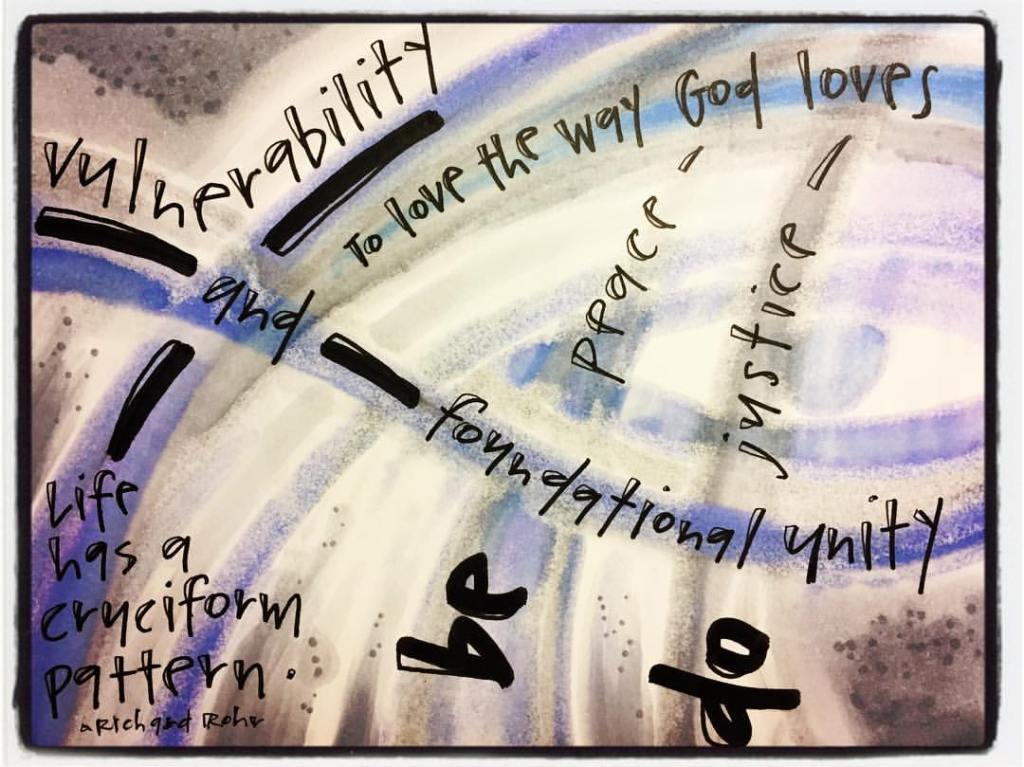 vulnerability
and
foundational unity
To love the way God loves
be peace
do justice
Life
has a
cruciform
pattern.
Richard Rohr